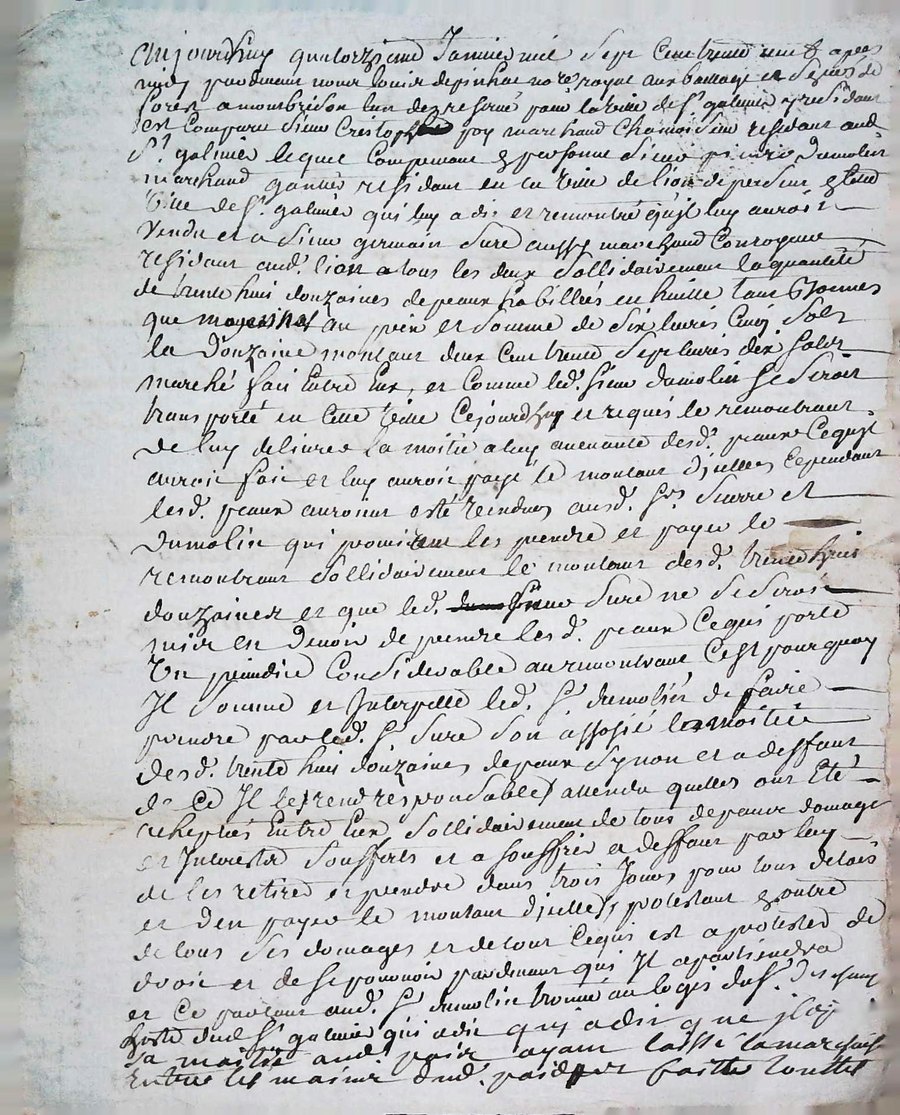 aujourdhuy quatorziesme Janvier mil sept cent trente neuf apres
midy pardevant nous louis depinhac no.re royal aux bailliage et senes. de
forez a montbrison lun des reservé pour la ville de s.t galmier y residant
est comparu sieur Cristophle poy marchand chamoiseur residant aud.
s.t galmier lequel Comparant en personne sieur pierre Dumolin
marchand gantier residant en la ville de lion de present en lad.
ville de s.t galmier qui luy a dit et remontré quil luy auroit
vendu et a sieur germain sure aussy marchand Couroyeur
residant aud. lion a tous les deux sollidairement la quantité
de trente huit douzaines de peaux habillées en huille tant bonnes
que au prix et somme de six livres Cinq sols
la Douzaine montant deux Cent trente sept livres dix solz
marché fait Entre Eux, et Comme led. sieur dumolin se seroit
transporté en Cette ville Cejourdhuy et requis le remontrant
de luy delivrer la moitié a luy aud. desd. peaux Cequil
auroit fait et luy auroit payé le montant dicelles Cependant
lesd. peaux auroient esté vendues ausd. s.rs surre et
Dumolin qui promirent les prendre et payer le
remontrant sollidairement le montant desd. trente huit
douzaines et que led. sieur sure ne se seroit
mis en devoir de prendre lesd. peaux Cequi porte
Un prejudice Considerable au remontrant Cest pourquoy
Il somme et Interpelle led. s.r dumolin de faire
prendre par led. s.r sure son assossié la moitiée
desd. trente huit douzaines de peaux synon et a deffaut
de Ce Il le rend responsable attendu quelles ont Eté
acheptées Entre Eux sollidairement de tous depans domages
et Interestz soufferts et a souffrir a deffaut par luy
de les retirer et prendre dans trois Jours pour tous delais
et den payer le montant dicelles protestant en outre
de tous ses domages et de tout Cequi est a protester de
droit et de se pourvoir pardevant qui Il apartiendra
et Ce parlant aud. s.r dumolin trouvé au logis du s.r
hoste dud. s.t galmier qui a dit qui a dit que
sa moitié aud. poix ayant laissé la marchise
Entre les mains dud. faitte